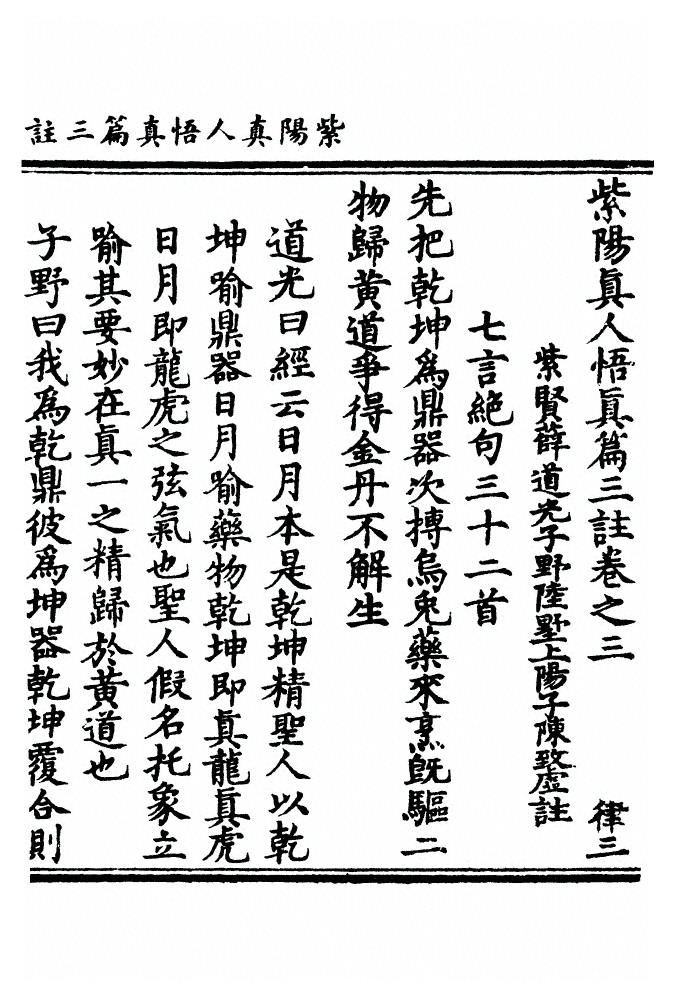 紫陽真人悟真篇三註
紫陽眞人悟眞篇三註卷之三 律三
紫賢薛道光子野陸墅上陽子陳致虛註
七言絕句三十二首
先把乾坤為鼎器次搏烏兔藥來烹旣驅二
物歸黃道爭得金丹不解生
道光曰經云日月本是乾坤精聖人以乾
坤喻鼎器日月喻藥物乾坤即眞龍眞虎
日月即龍虎之弦氣也聖人假名托象立
喻其要妙在眞一之精歸於黃道也
子野曰我為乾鼎彼為坤器乾坤覆合則